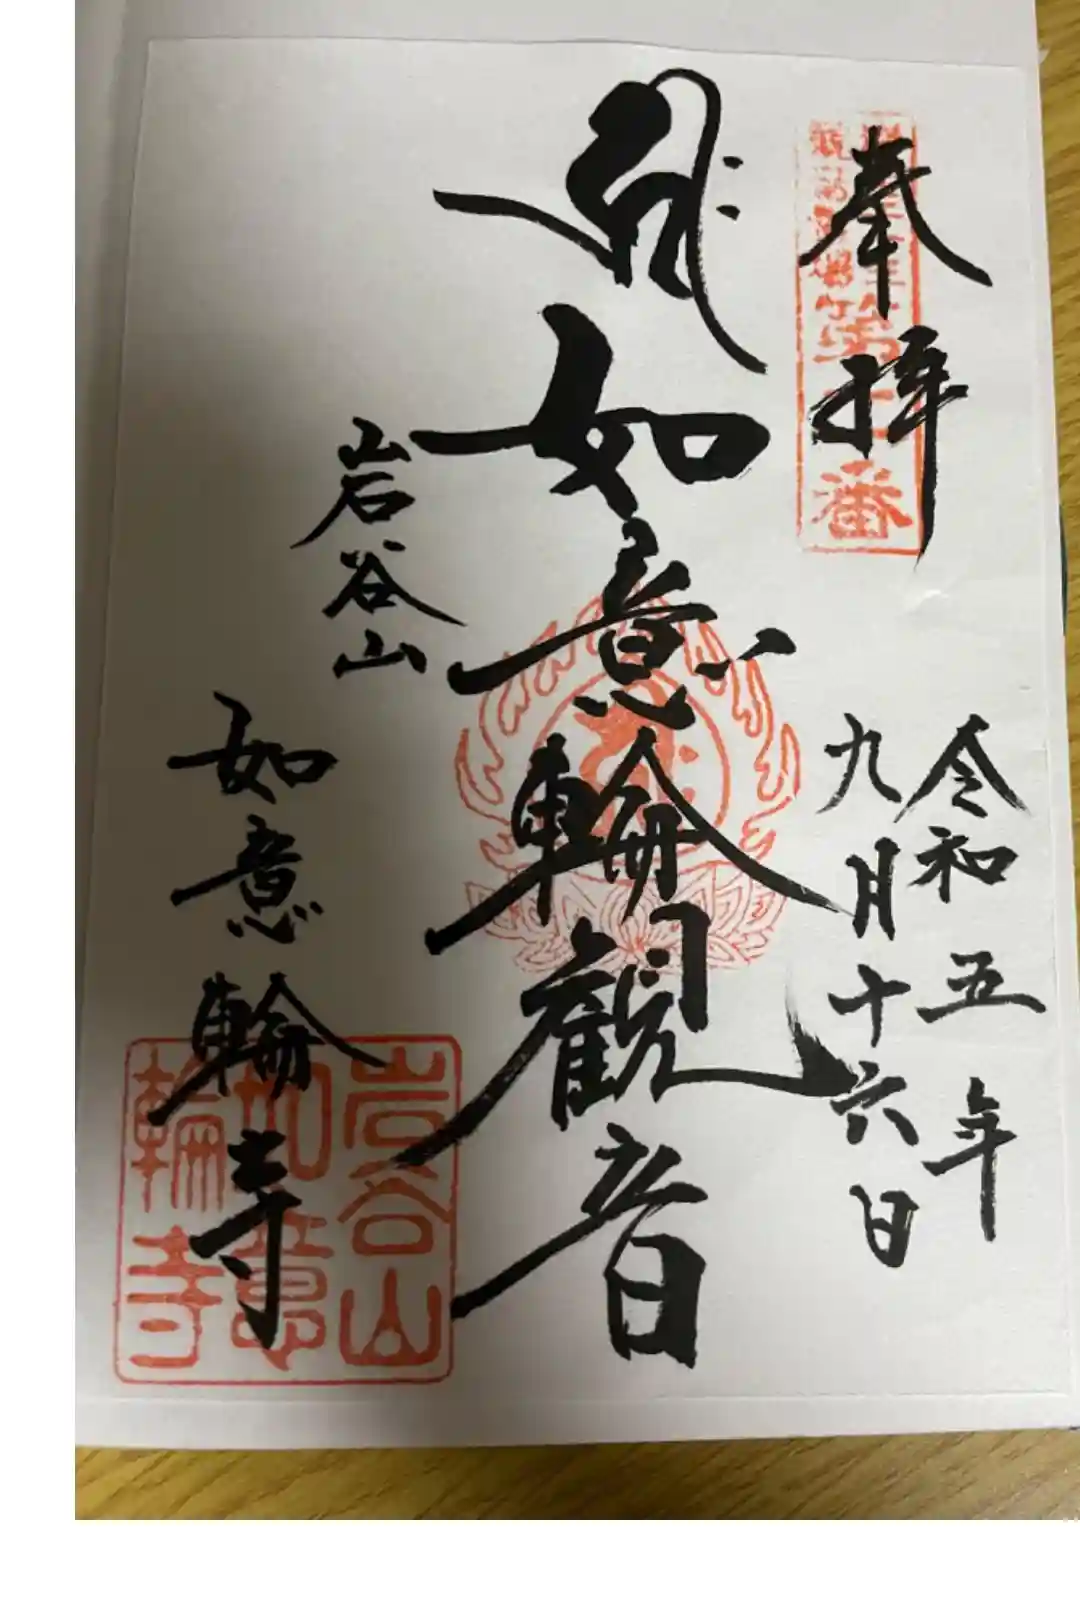 奉拝
第十番
令和五年
九月十六日
如意輪観音
岩谷山
如意輪寺
岩谷山
如意
輪寺